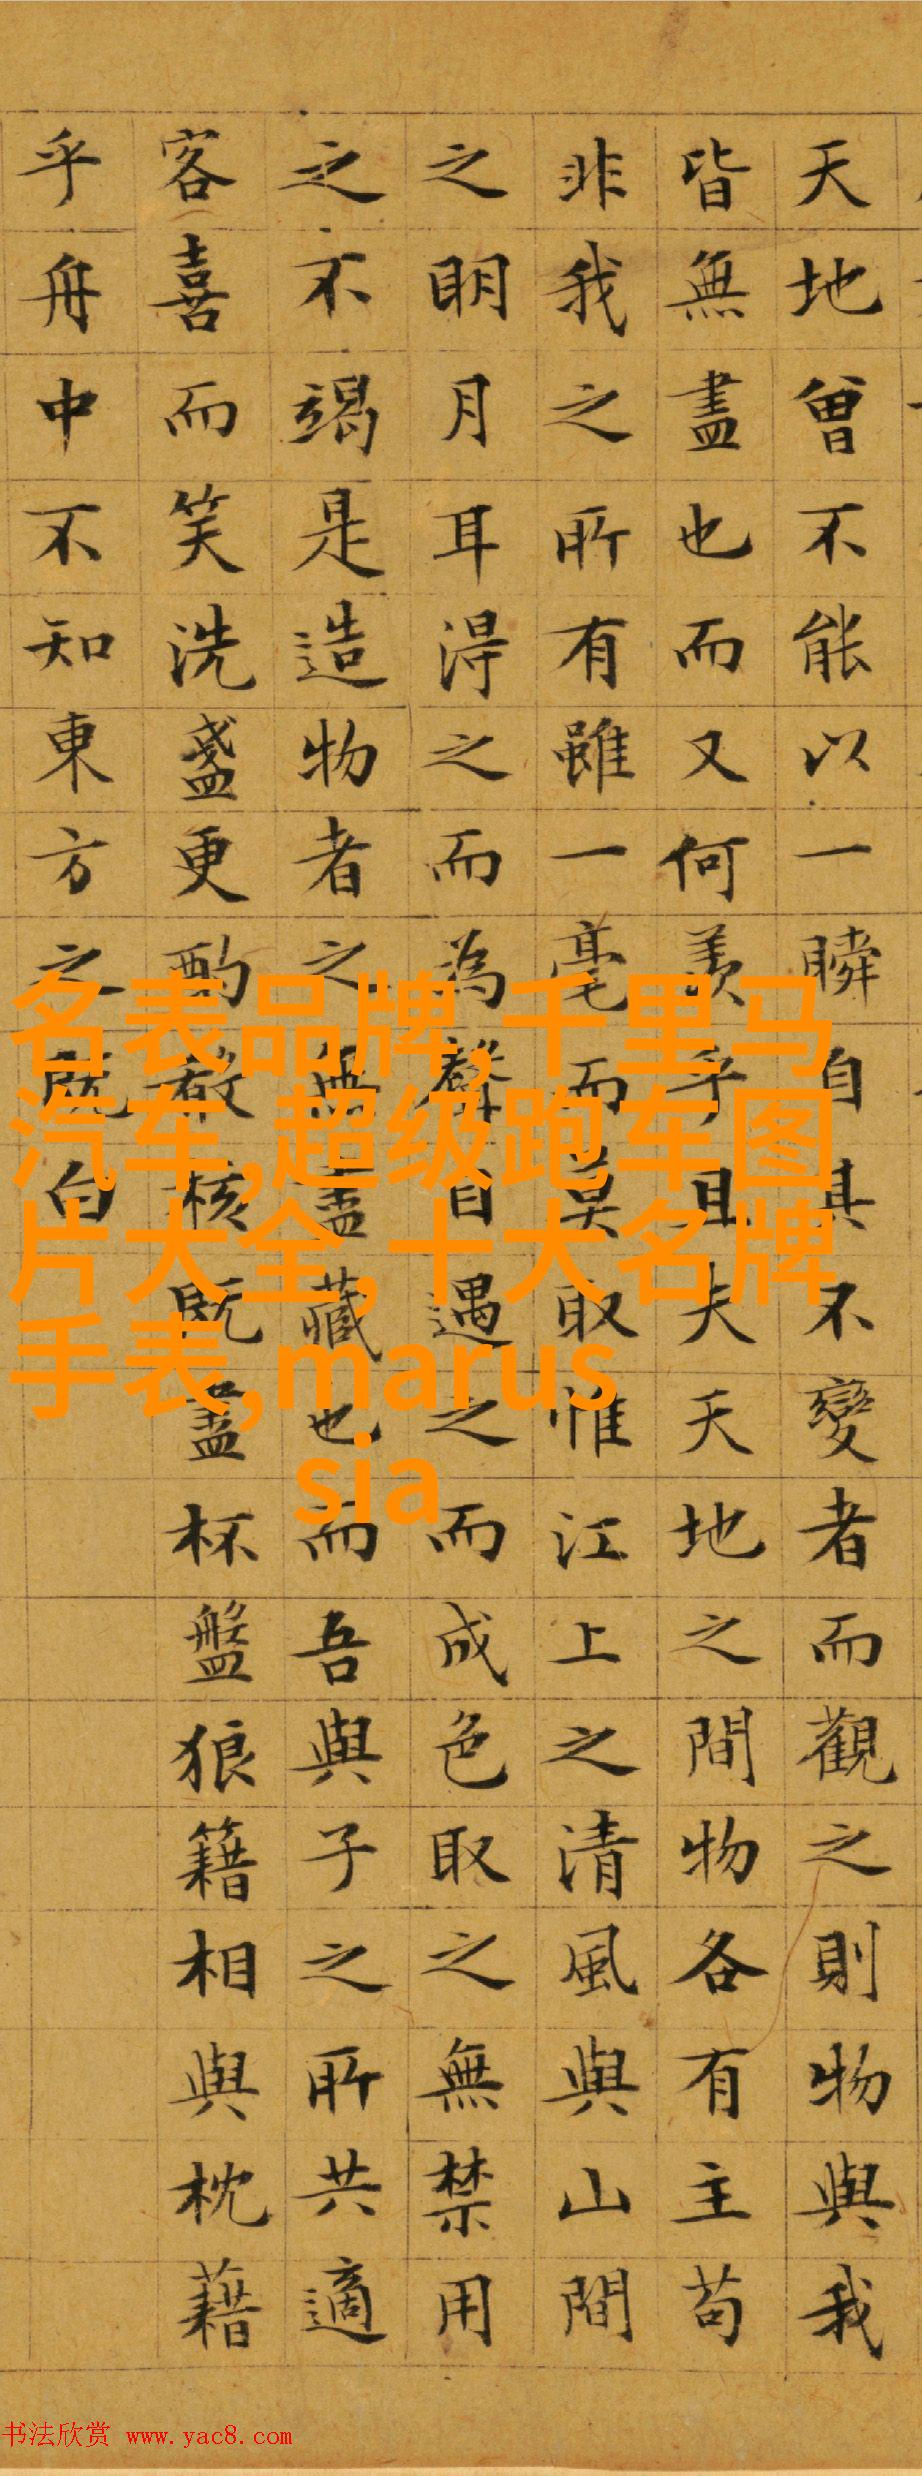 天地曾不能以一瞬自其不變者而觀之則物與我
皆無盡也而又何羨乎且夫天地之間物各有主苟
非我之所有雖一毫而莫取惟江上之清風與山間
之明月耳得之而為聲目遇之而成色取之無禁用
之不竭是造物者之無盡藏也而吾與子之所共適
客喜而笑洗盞更酌殽核既盡杯盤狼籍相與枕藉
乎舟中不知東方之既白
名表品牌,千里马
汽车,超级跑车图
片大全,十大名牌
手表,marus
sia
书法欣赏 www.yac8.com